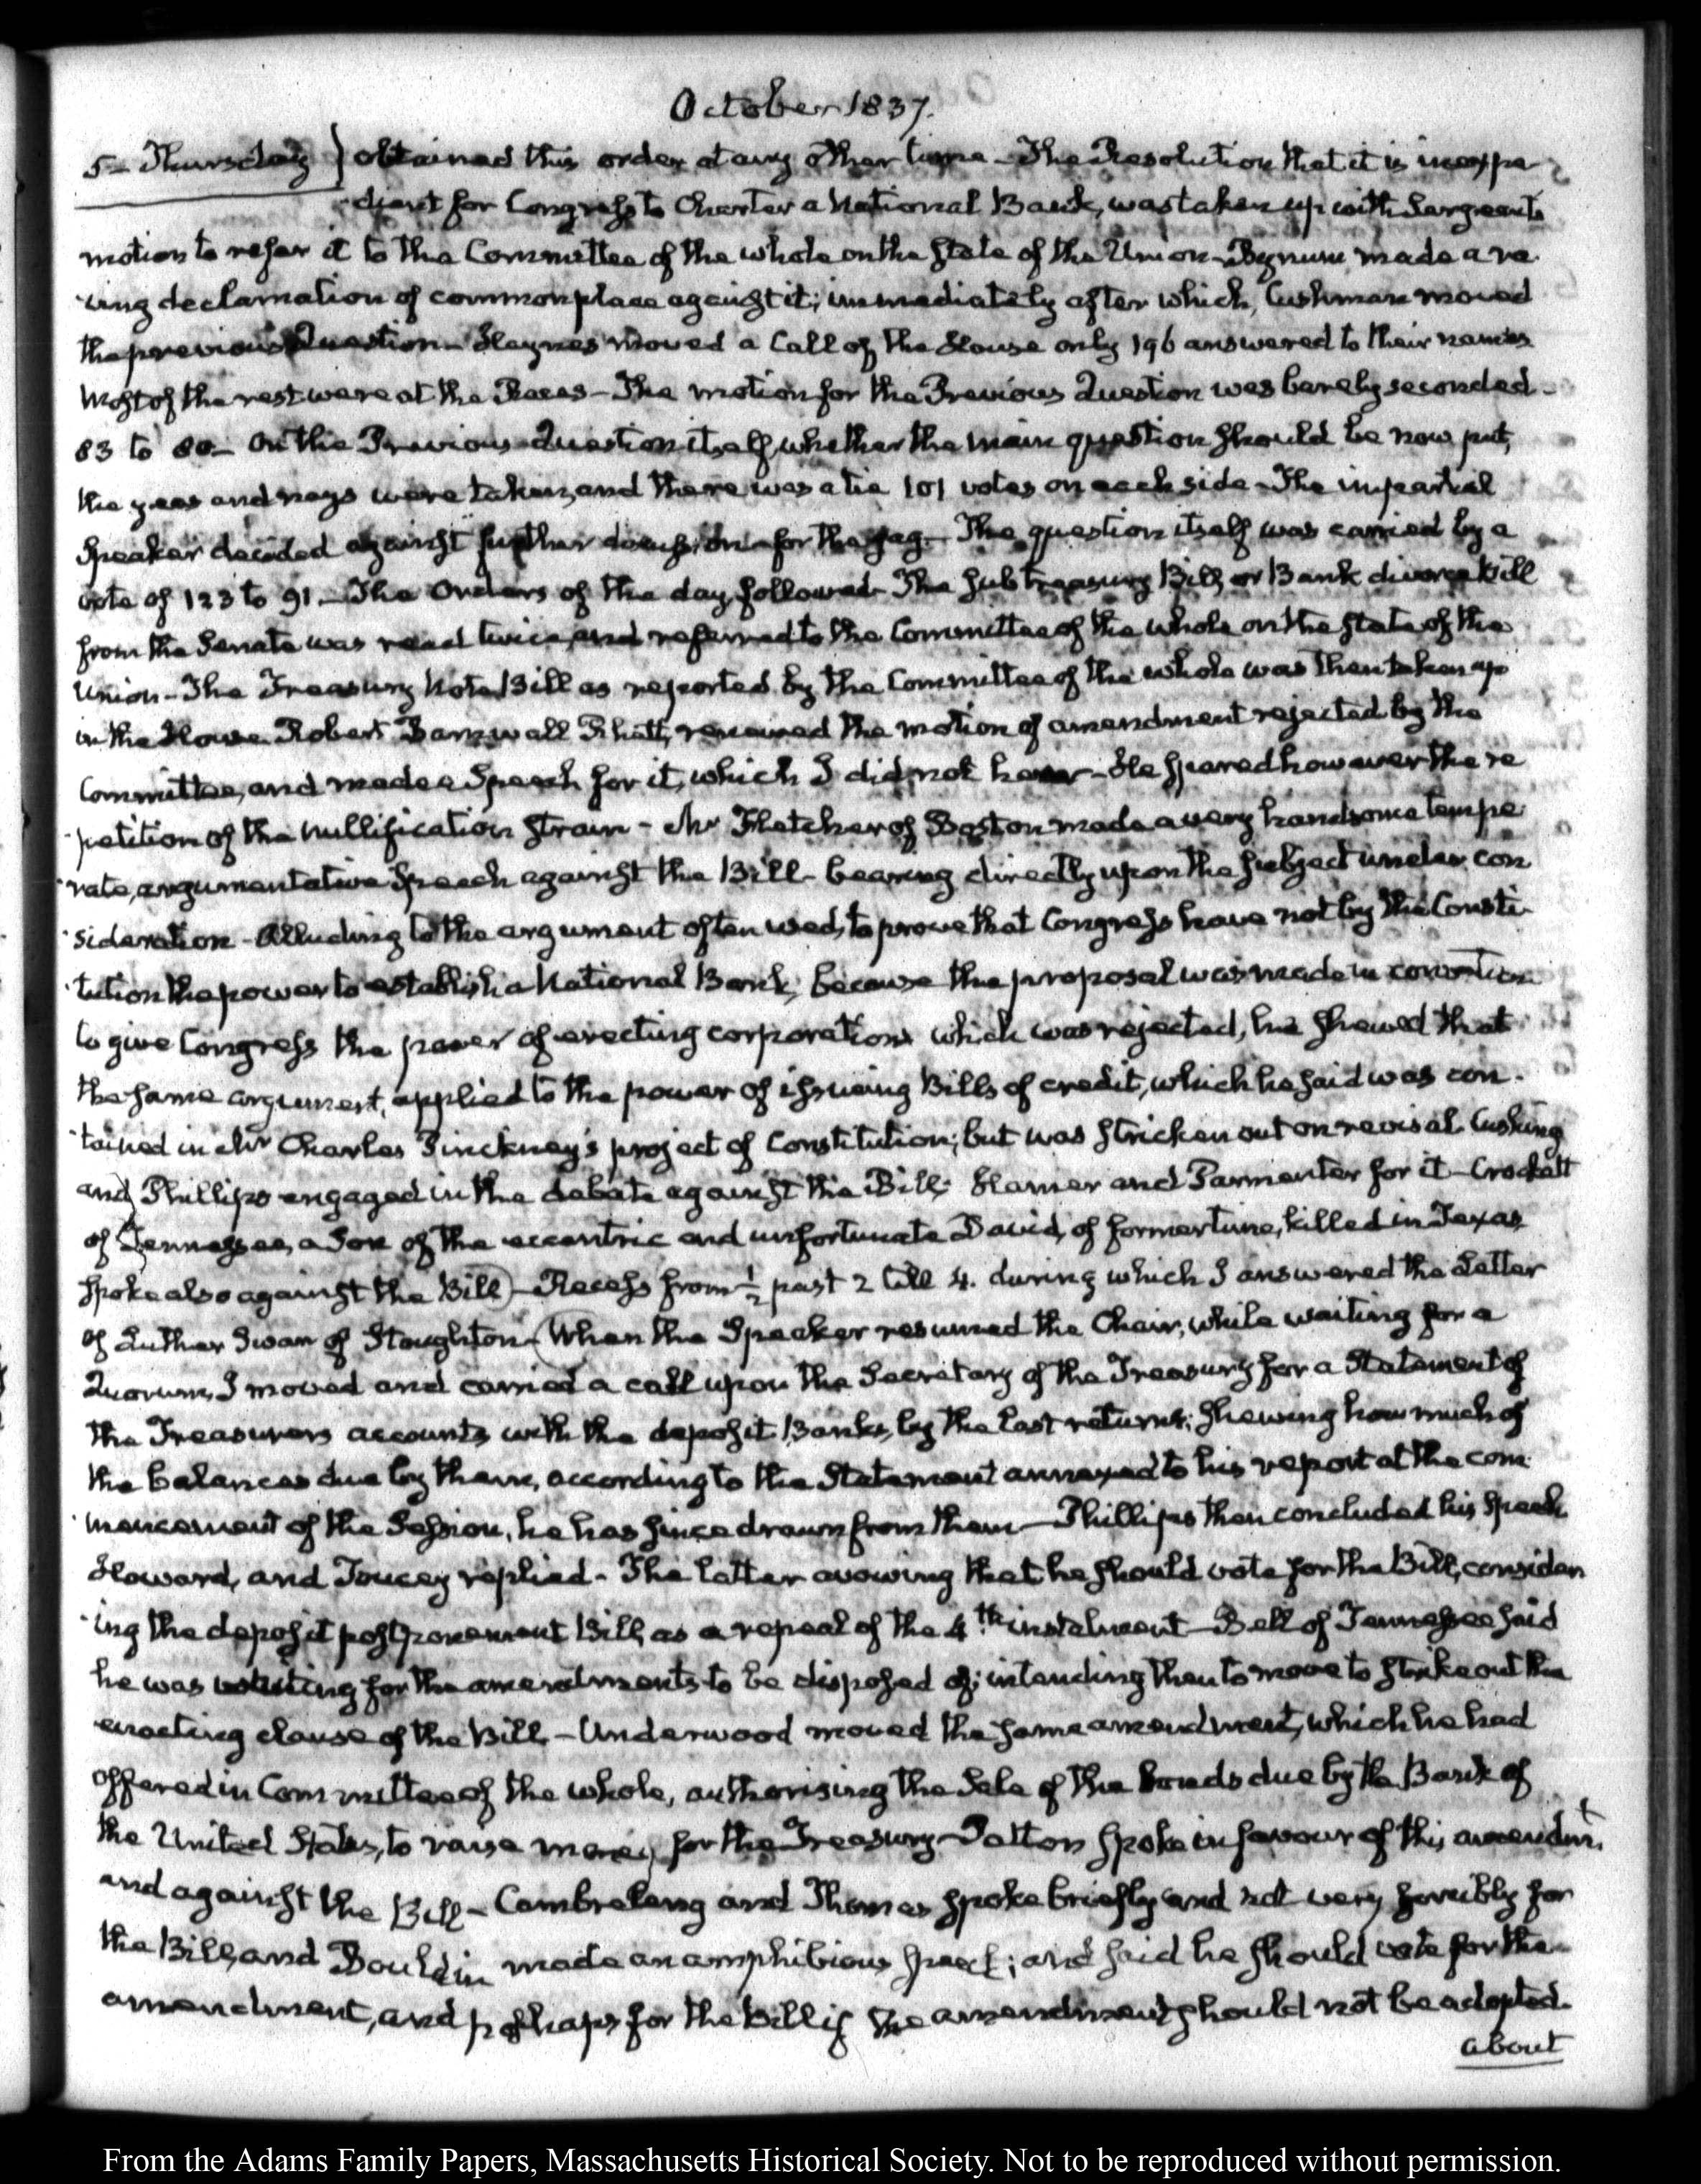 October 1837.
5 - Thursday } obtained this order at any other time - The Resolution that it is inexpe
-dient for Congress to Charter a National Bank, was taken up with Sargeant's
motion to refer it to the Committee of the whole on the State of the Union - Bynum made a ra
-ing declamation of common place against it; immediately after which, Cushman moved
the previous Question - Haynes moved a Call of the House only 196 answered to their names
Most of the rest were at the Races - The motion for the Previous Question was barely seconded -
83 to 80 - On the Previous Question itself, whether the main question should be now put,
the yeas and nays were taken, and there was a tie 101 votes on each side - The impartial
Speaker decided against further discussion for the gag - The question itself was carried by a
vote of 123 to 91 - The Orders of the day followed - The sub treasury Bill, or Bank divorce bill
from the Senate was read twice, and referred to the Committee of the whole on the State of the
Union - The Treasury Note Bill as reported by the Committee of the whole was then taken up
in the House Robert Barnwell Rhett, renewed the motion of amendment rejected by the
Committee, and made a Speech for it, which I did not hear - He spared however the re
-petition of the nullification strain - Mr Fletcher of Boston made a very handsome tempe
-rate, argumentative Speech against the Bill - bearing directly upon the subject under con
-sideration - Alluding to the argument often used, to prove that Congress have not by the Consti-
-tution the power to establish a National Bank, because the proposal was made in convention
to give Congress the power of erecting corporations which was rejected, he shewed that
the same argument, applied to the power of issuing Bills of credit, which he said was con-
-tained in Mr Charles Pinckney's project of Constitution; but was stricken out on revisal Cushing
and Phillips engaged in the debate against the Bill; Hamer and Parmenter for it - Crockett
of Tennessee, a Son of the eccentric and unfortunate David, of former time, killed in Texas
spoke also against the Bill) - Recess from ½ past 2 till 4. during which I answered the Letter
of Luther Swan of Stoughton - (When the Speaker resumed the Chair, while waiting for a
Quorum, I moved and carried a call upon the Secretary of the Treasury for a Statement of
the Treasurers accounts with the deposit Banks, by the last returns; shewing how much of
the balances due by them, according to the Statement annexed to his report at the com
-mencement of the Session, he has since drawn from them - Phillips then concluded his Speech
Howard, and Toucey replied - The latter avowing that he should vote for the Bill, consider
-ing the deposit postponement Bill, as a repeal of the 4th instalment - Bell of Tennessee said
he was waiting for the amendments to be disposed of; intending then to move to strike out the
enacting clause of the Bill - Underwood moved the same amendment, which he had
offered in Committee of the whole, authorising the Sale of the bonds due by the Bank of
the United States, to raise money for the Treasury - Patton spoke in favour of this amendmt
and against the Bill - Cambreleng and Thomas spoke briefly and not very forcibly for
the Bill, and Bouldin made an amphibious speech; and said he should vote for the
amendment, and perhaps for the Bill if the amendment should not be adopted.
about
From the Adams Family Papers, Massachusetts Historical Society. Not to be reproduced without permission.